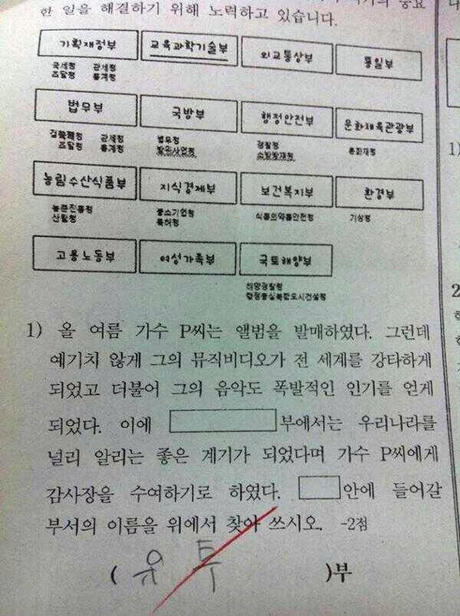 한 일을 해결하기 위해 노력하고 있습니다.
기획재정부 교육과학기술부 외교통상부 통일부
국세청 관세청
조달청 통계청
법무부 국방부 행정안전부 문화체육관광부
검찰청 관세청 병무청 경찰청 문화재청
조달청 통계청 방위사업청 소방방재청
농림수산식품부 지식경제부 보건복지부 환경부
농촌진흥청 중소기업청 식품의약품안전청 기상청
산림청 특허청
고용노동부 여성가족부 국토해양부
해양경찰청
행정중심복합도시건설청
1) 올 여름 가수 P씨는 앨범을 발매하였다. 그런데
예기치 않게 그의 뮤직비디오가 전 세계를 강타하게
되었고 더불어 그의 음악도 폭발적인 인기를 얻게
되었다. 이에 부에서는 우리나라를
널리 알리는 좋은 계기가 되었다며 가수 P씨에게
감사장을 수여하기로 하였다. 안에 들어갈
부서의 이름을 위에서 찾아 쓰시오. -2점
( 유 투 )부